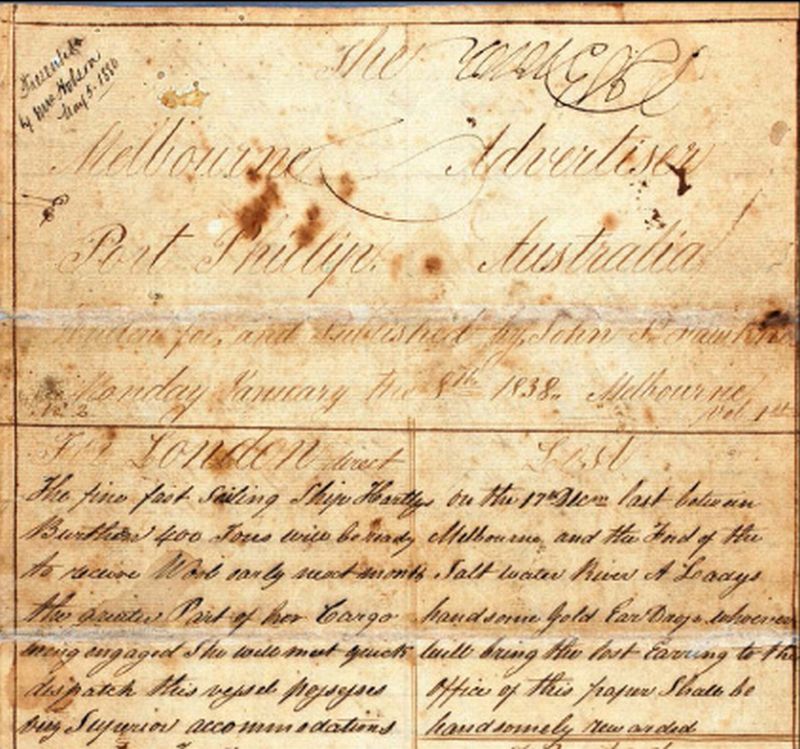 Presented
by Mrs Hobson
May 5. 1880
The
Melbourne Advertiser
Port Phillip. Australia
Written for, and Published by John P. Fawkner
Monday January the 8th 1838. Melbourne
No 2 Vol 1st
For London direct
The fine fast Sailing Ship Hartly
Burthen 400 Tons will be ready
to receive Wool early next month
the greater Part of her Cargo
being engaged She will meet quick
dispatch this vessel possesses
very Superior accommodations
Lost
on the 17th Decm last between
Melbourne and the Ford of the
Salt water River A Ladys
handsome Gold Ear Drop, whoever
will bring the lost Earring to the
Office of this paper Shall be
handsomely rewarded